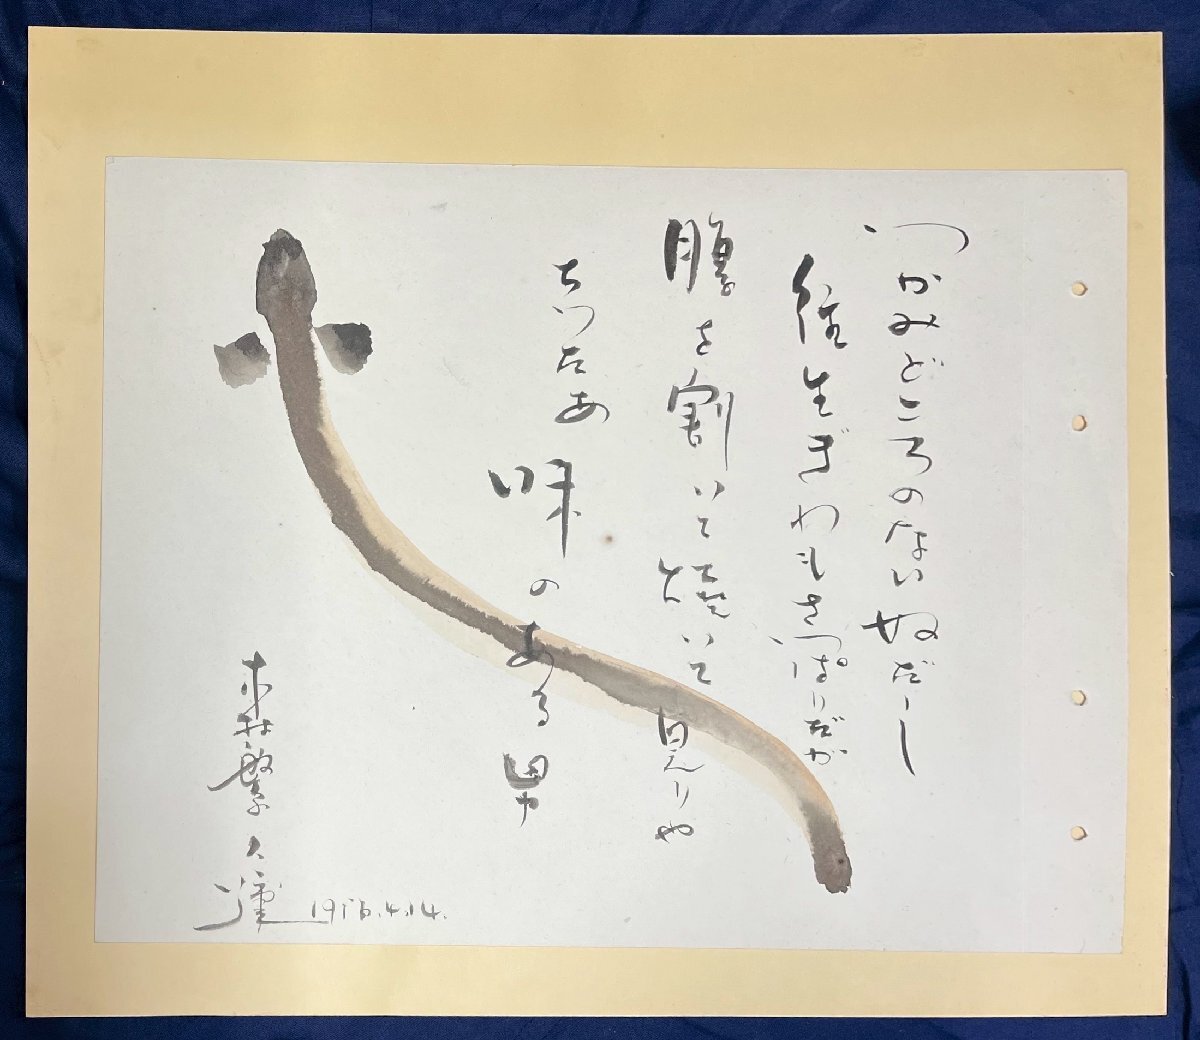 つかみどころのないぬだーし
往生ぎわもさっぱりだが
腹を割いて焼いて見りや
ちったあ味のある男
木村繁久
1956.4.14.